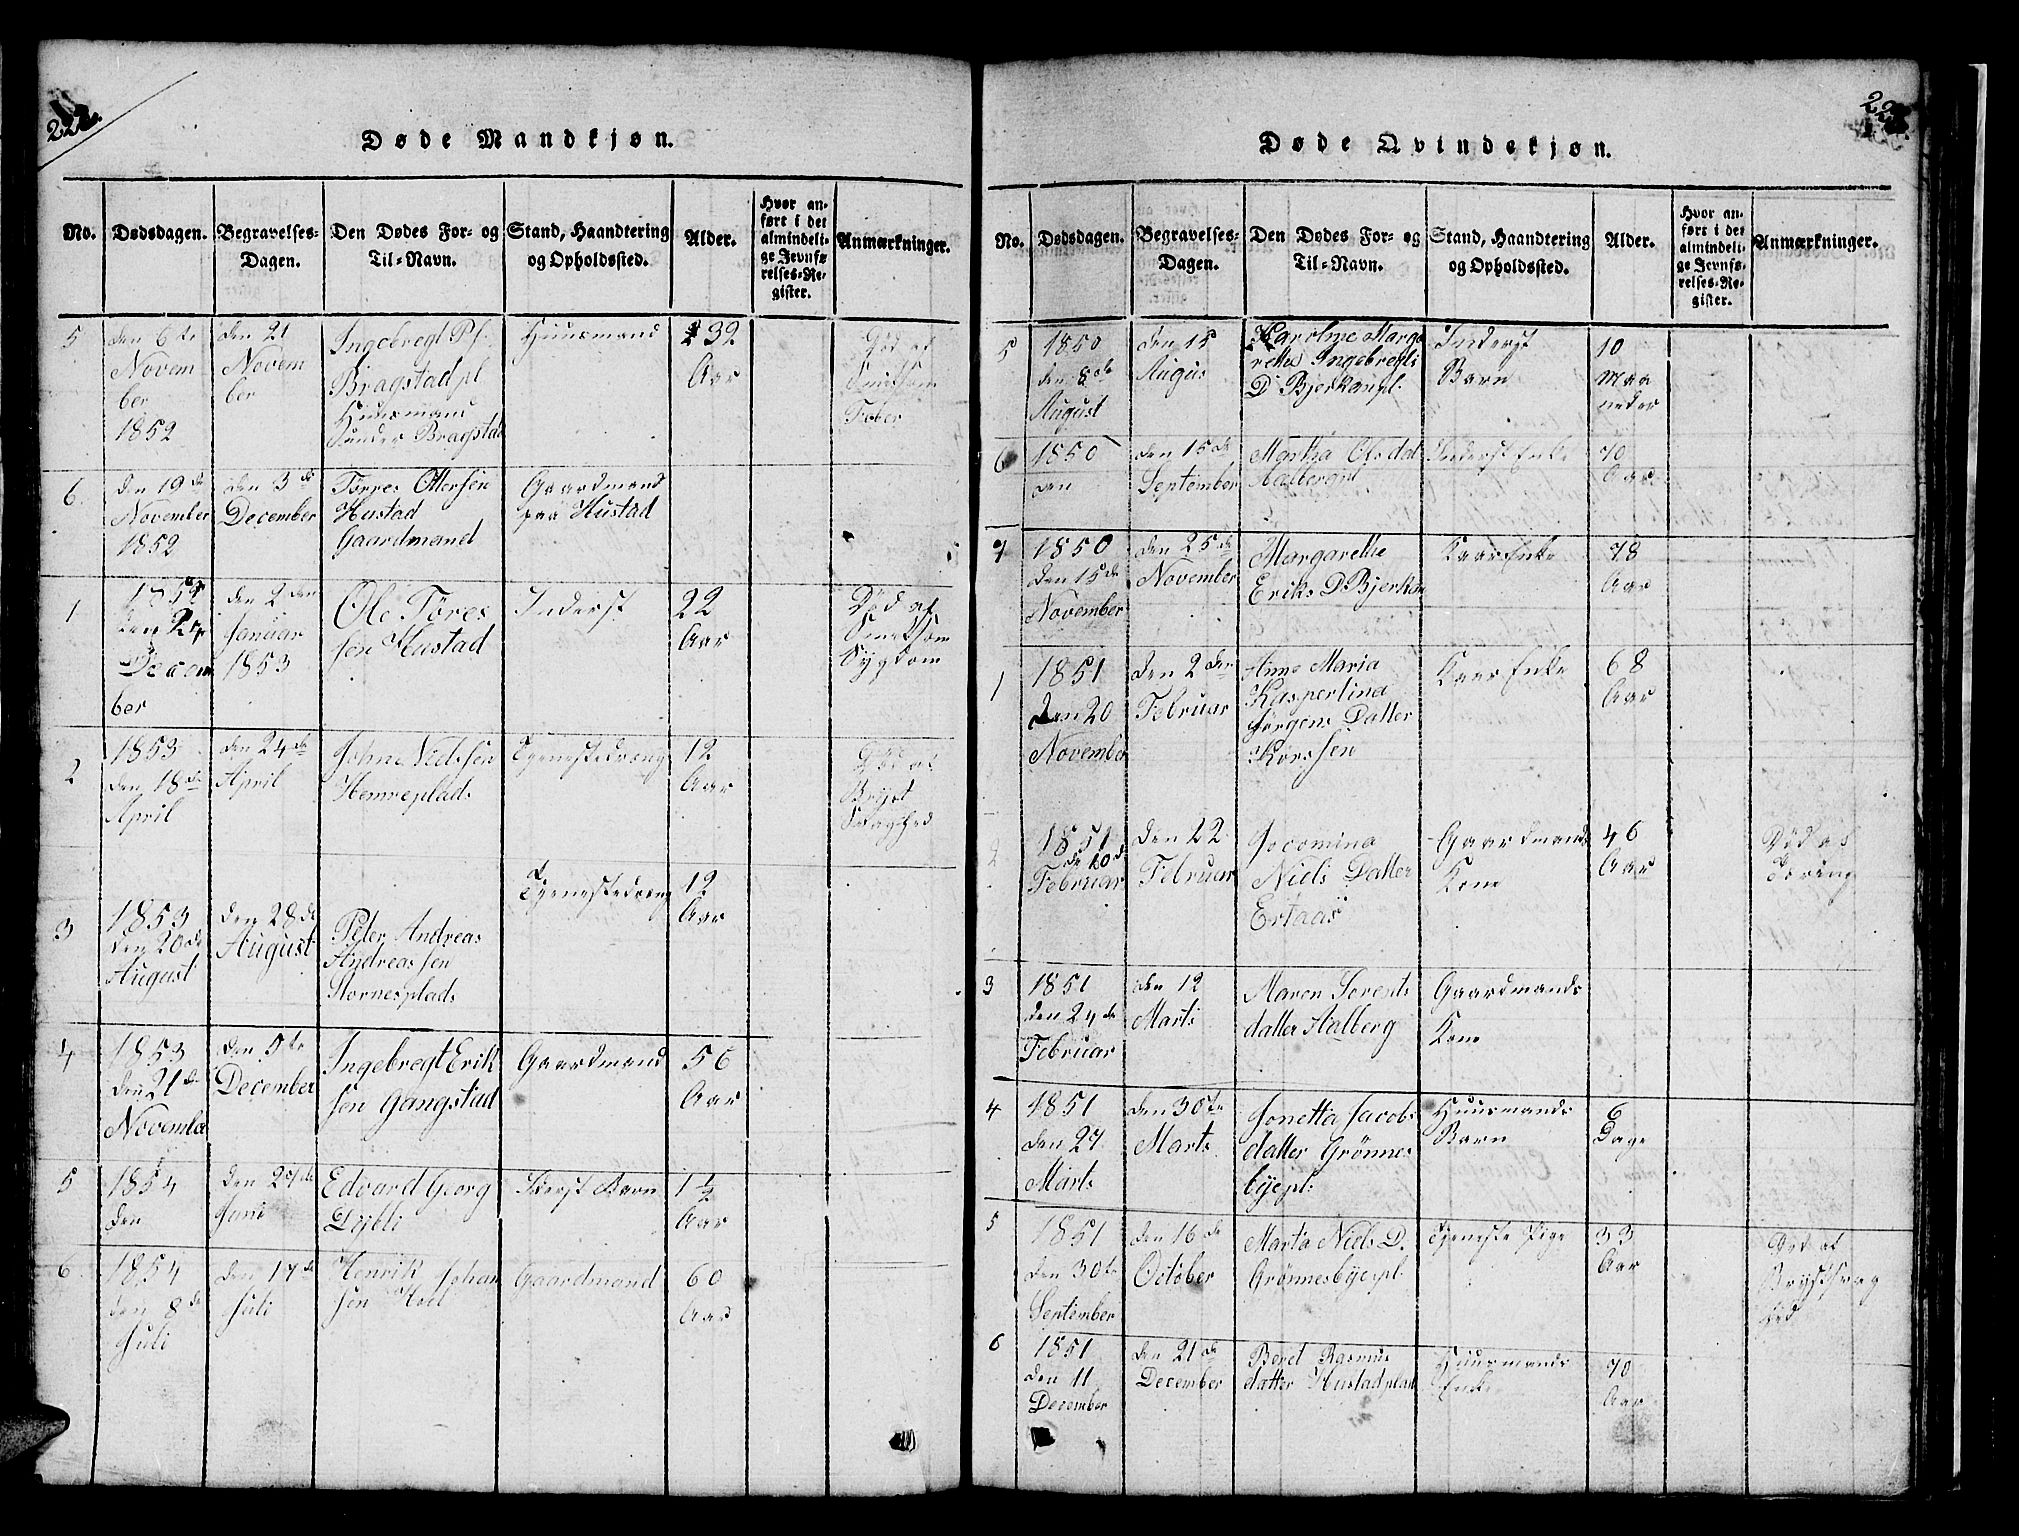 222.
Døde Mandkjøn.
No.
Dødsdagen.
Begravelses-
Dagen.
Den Dødes For- og
Til-Navn.
Stand, Haandtering
og Opholdssted.
Alder.
Hvor an-
ført i det
almindeli-
ge Jevnfø-
relses-Re-
gister.
Anmærkninger.
5
den 6te
Novem
ber
1852
den 21
Novem
ber
Ingebregt
Bragstadpl
Huusmand
under Bragstad
Huusmand
39
Aar
Død af
Smitsom
Feber
6
den 19de
November
1852
den 3de
December
Torres Ottersen
Hustad
Gaardmand
Gaardmand
paa Hustad
1
den
Decem
ber
den 2den
Januar
1853
Ole Tøres
sen Hustad
Inderst
22
Aar
Død af
Smitsom
Sygdom
2
1853
den 18de
April
den 24de
April
Johne Nielssen
Hemreplads
Tjenestedreng
12
Aar
Død af
Bryst
Svaghed
3
1853
den 20de
August
den 28de
August
Peter Andreas
Andreassen
Stornesplads
Tjenestedreng
12
Aar
4
1853
den 21de
November
den 5te
December
Ingebregt Erik
sen Gangstad
Gaardmand
56
Aar
5
1854
den
den 27de
Juni
Edvard Georg
Dybli
Barn
1½
Aar
6
1854
den 8de
Juli
den 17de
Juli
Henrik Johan
sen Hoel
Gaardmand
60
Aar
Døde Qvindekjøn.
No.
Dødsdagen.
Begravelses-
Dagen.
Den Dødes For- og
Til-Navn.
Stand, Haandtering
og Opholdssted.
Alder.
Hvor an-
ført i det
almindeli-
ge Jevnfø-
relses-Re-
gister.
Anmærkninger.
5
1850
den 8de
August
den 15
Augus
Karoline Marga
retha Ingebregts
D Bjerkanpl.
Inderst
Barn
10
Maa
neder
6
1850
den
den 15de
September
Martha Ols dal
Halbergpl
Inderst Enke
70
Aar
7
1850
den 15de
November
den 25de
November
Margarethe
Eriks D Bjerkan
Kaar Enke
78
Aar
1
1851
den 20
November
den 2den
Februar
Anne Maria
Kaspertina
Jørgens Datter
Korssen
Kaar Enke
68
Aar
2
1851
de 10de
Februar
den 22
Februar
Jocomina
Niels Datter
Ertaas
Gaardmands
Kone
46
Aar
Død af
Tæring
3
1851
den 24de
Februar
den 12
Marts
Maren Sorents
datter Halberg
Gaardmands
Kone
4
1851
den 27
Marts
den 30te
Marts
Jonetta Jacobs
datter Grønnes
byepl:
Huusmands
Barn
6
Dage
5
1851
den 30te
September
den 16de
October
Marta Niels D.
Grønnesbyepl.
Tjeneste Pige
33
Aar
Død af
Brystsvag
hed
6
1851
den 11
December
den 21de
December
Beret Rasmus
datter Hustadplad
Huusmands
Enke
70
Aar